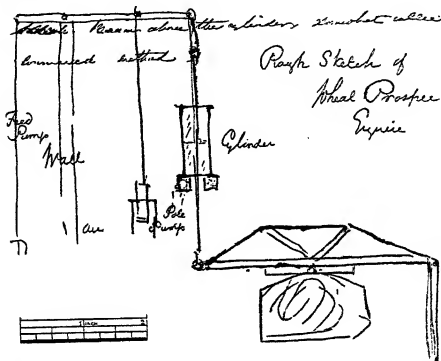 Beam above the cylinders somewhat
method
Rough Sketch of
Wheal Prosper
Engine
Feed
Pump
Wall
Cylinder
Air
Pole
Pumps
1 inch